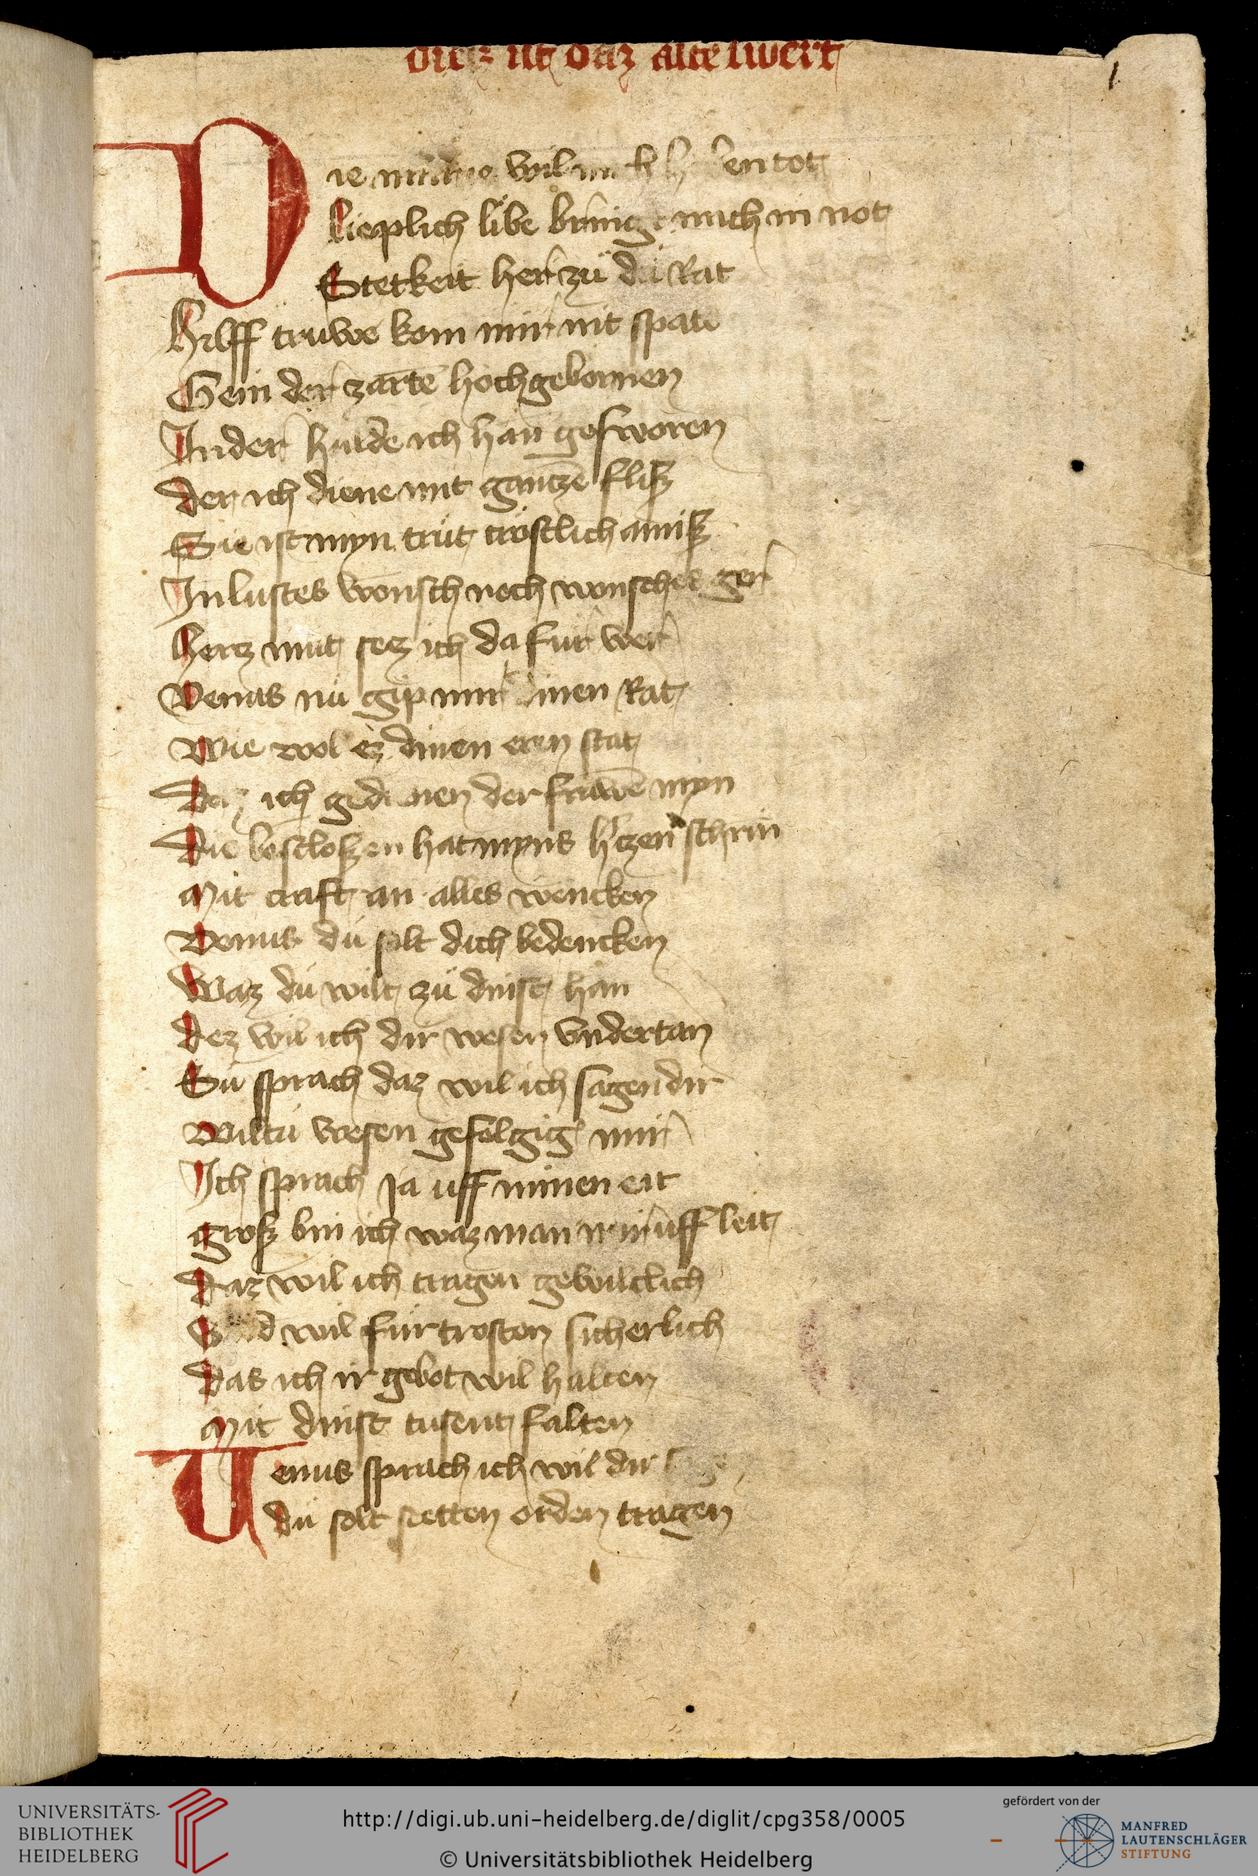 diez ist daz alte swert
1
Die minne wil mich haben tot
Lieplich libe bringt mich in not
Stetkeit her zu din Rat
Hilff truwe kom mir nit spate
Gein der zarte hochgebornen
In der hulde ich han gesworen
Der ich diene mit gantze flisz
Sie ist myn trut trostlich amisz
In lustes wonsch noch wonsches ger
Hertz mut setz ich da fur wer
Venus nu gip mir dinen Rat
Wie wol ez dinen eren stat
Daz ich gedienen der frawe myn
Die beslossen hat myns hertzen schrin
Mit craft an alles wencken
Venus du solt dich bedencken
Waz du wilt zu dinst han
Dez wil ich dir wesen vndertan
Su sprach daz wil ich sagen dir
Wiltu wesen gefolgig mir
Ich sprach Ja uff minen eit
Grosz bin ich waz man mir uff leit
Daz wil ich tragen gedulticlich
wil fur trosten sicherlich
Das ich ir gebot wil halten
Mit dinst tusent falten
Venus sprach ich wil dir
Du solt stetten orden tragen
UNIVERSITÄTS-
BIBLIOTHEK
HEIDELBERG
http://digi.ub.uni-heidelberg.de/diglit/cpg358/0005
© Universitätsbibliothek Heidelberg
gefördert von der
MANFRED
LAUTENSCHLÄGER
STIFTUNG